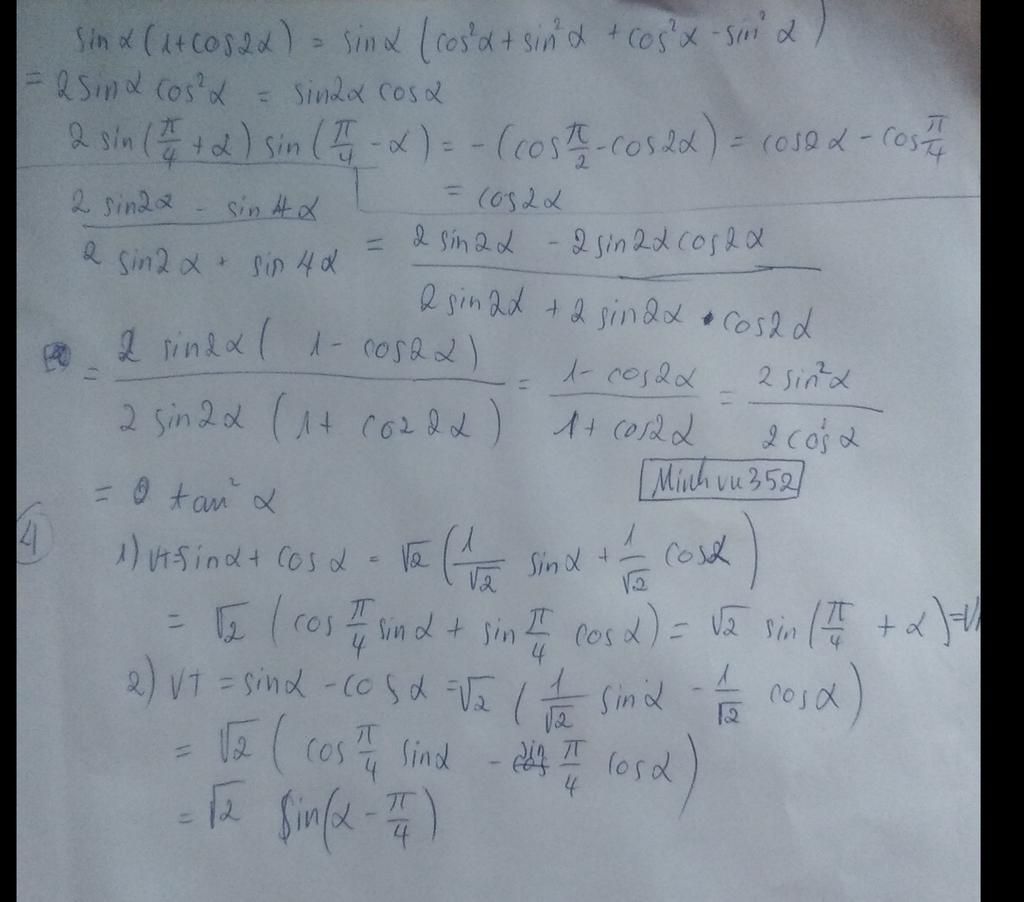 sinα(1+cos2α) = sinα (cos²α + sin²α + cos²α - sin²α)
= 2sinα cos²α = sin2α cosα
2 sin(π/4 + α) sin(π/4 - α) = -(cos π/2 - cos2α) = cos2α - cos π/4
= cos2α
(2 sin2α - sin4α)/(2 sin2α + sin4α) = (2 sin2α - 2 sin2α cos2α)/(2 sin2α + 2 sin2α • cos2α)
= (2 sin2α (1 - cos2α))/(2 sin2α (1 + cos2α)) = (1 - cos2α)/(1 + cos2α) = (2 sin²α)/(2 cos²α)
Minhvu352
= tan²α
4
1) VT=sinα + cosα = √2 (1/√2 sinα + 1/√2 cosα)
= √2 (cos π/4 sinα + sin π/4 cosα) = √2 sin(π/4 + α) =
2) VT = sinα - cosα = √2 (1/√2 sinα - 1/√2 cosα)
= √2 (cos π/4 sinα - sin π/4 cosα)
= √2 sin(α - π/4)